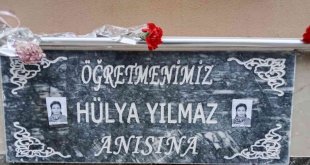 ÖĞRETMENİMİZ
HÜLYA YILMAZ
ANISINA